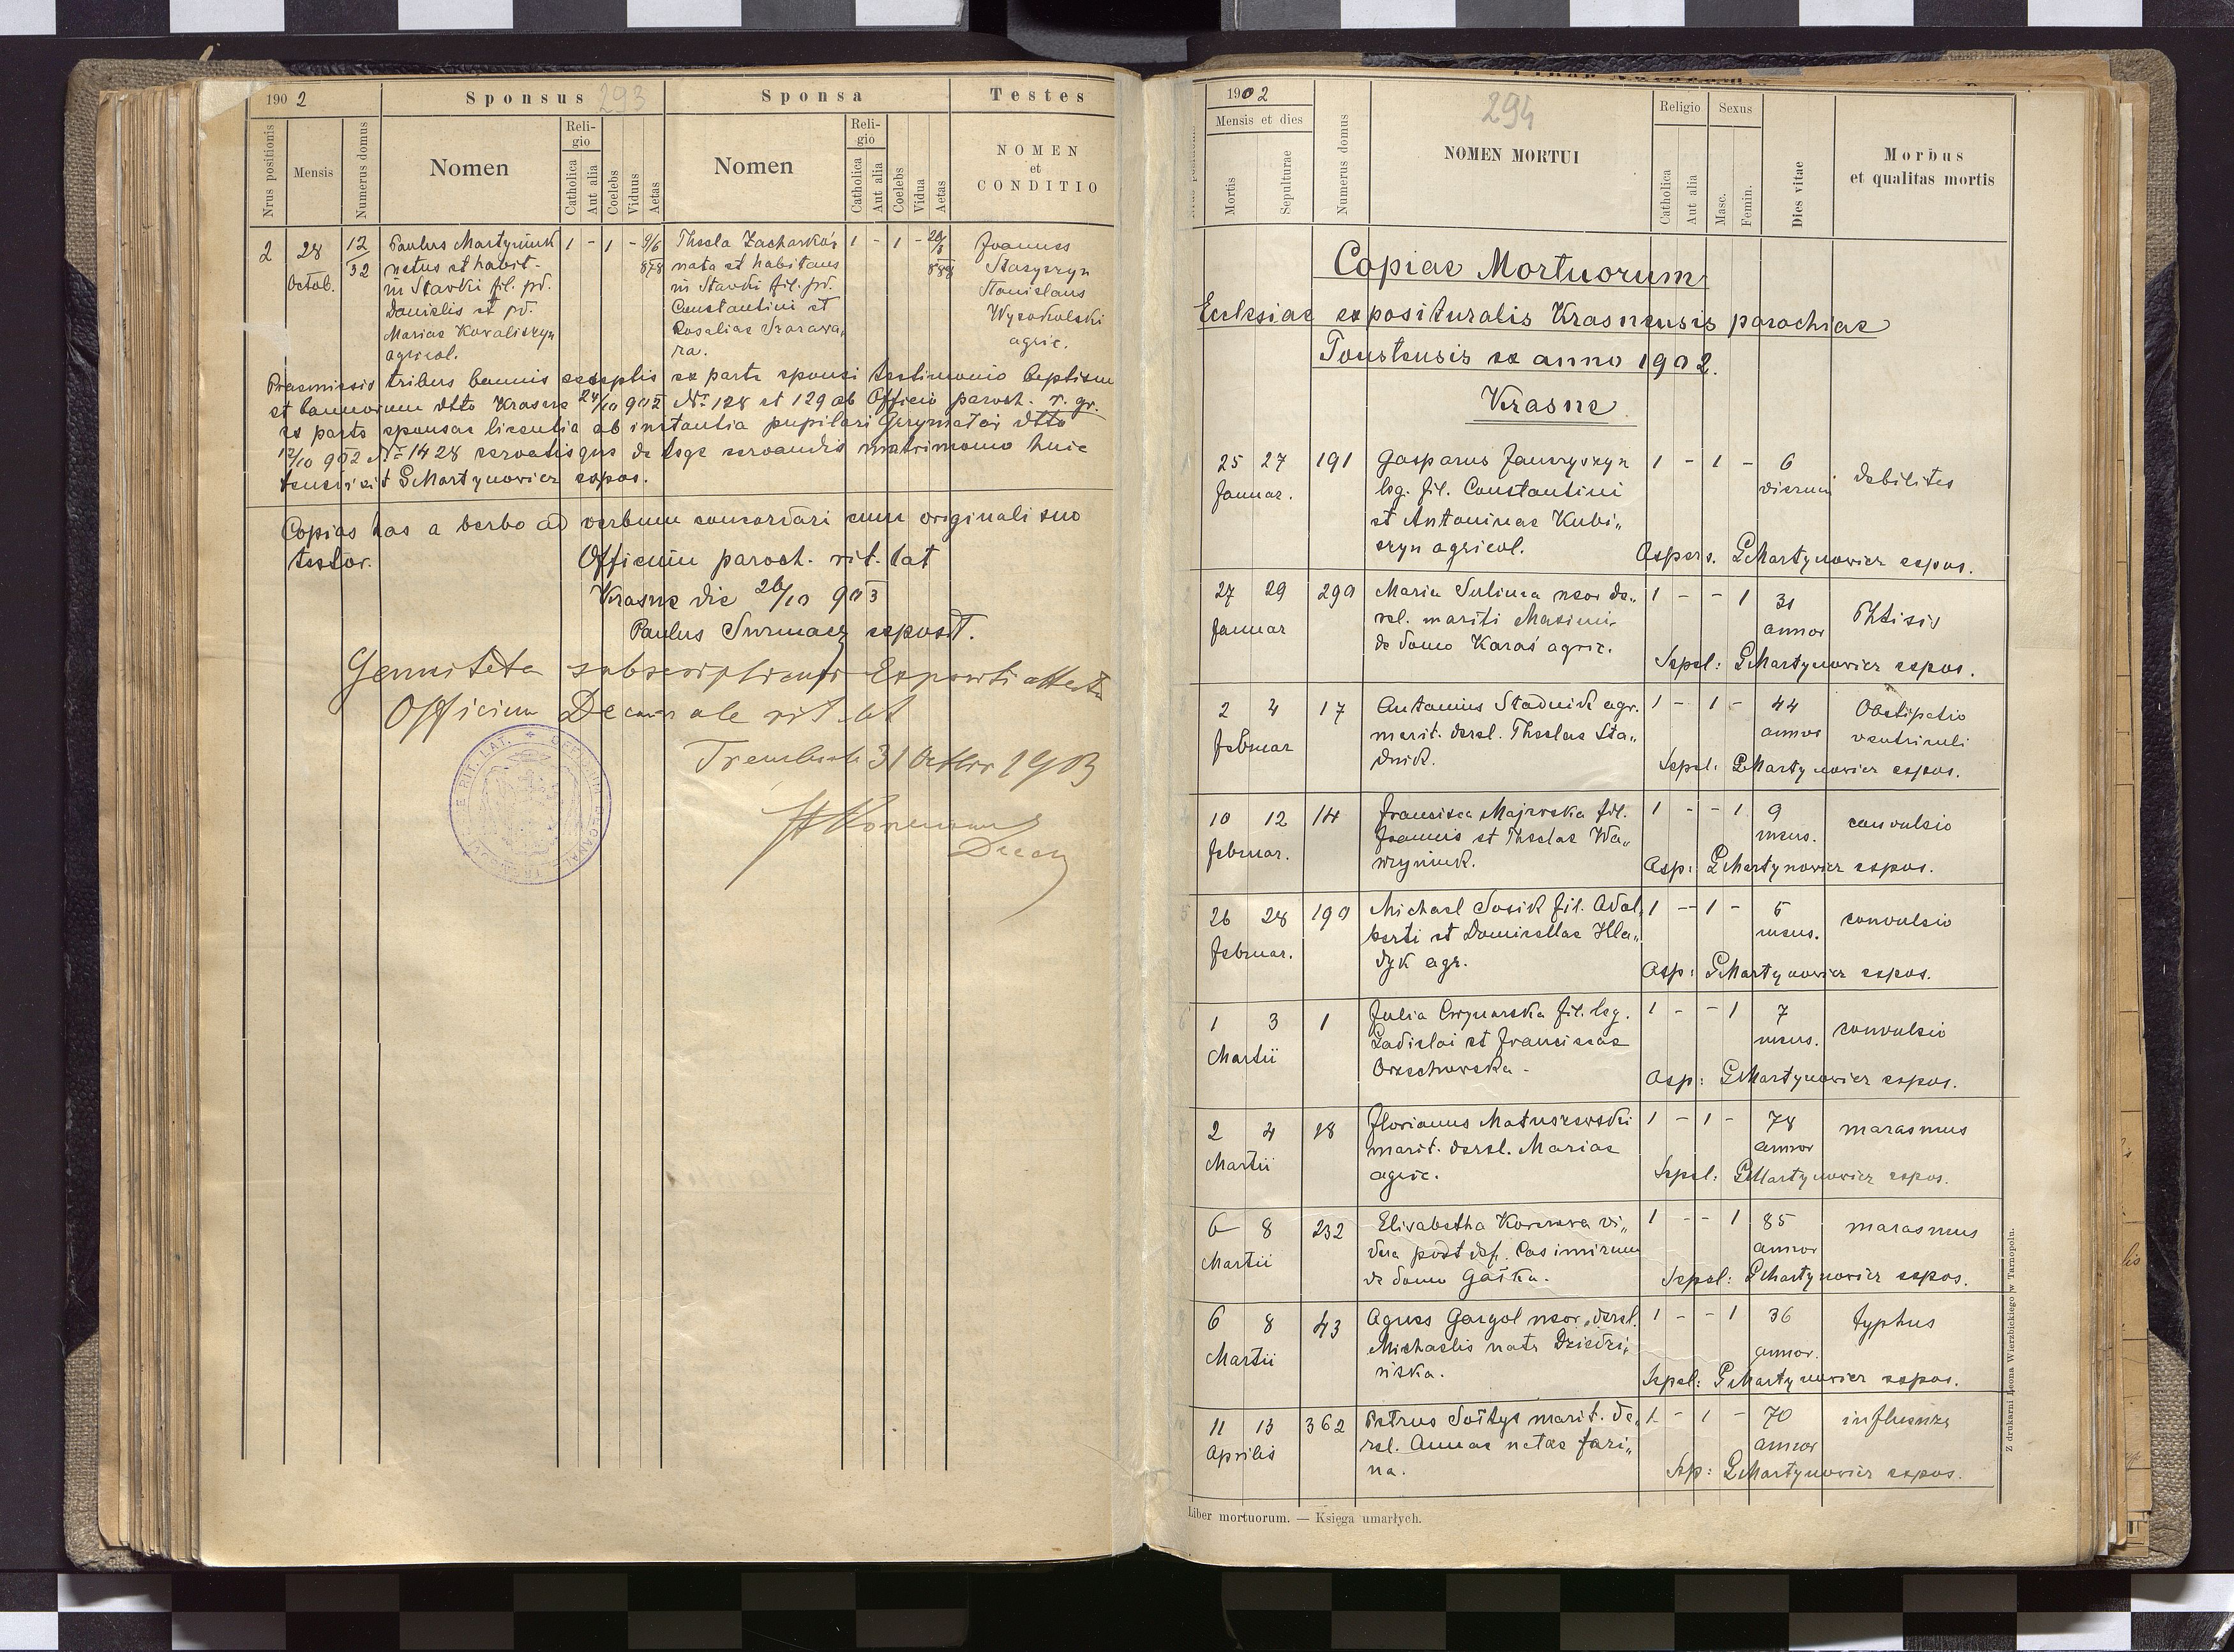 1902
Sponsus 293
Sponsa
Testes
Nrus positionis
Mensis
Numerus domus
Nomen
Religio
Catholica
Aut alia
Coelebs
Viduus
Aetas
Nomen
Religio
Catholica
Aut alia
Coelebs
Vidua
Aetas
NOMEN
et
CONDITIO
2 28 Octob. 12/32
Paulus Martyniuk
natus et habit-
in Stawki fil. pd.
Danielis et pd.
Mariae Kowaliszyn
agricol.
1 - 1 - 9/6 878
Thecla Zacharków
nata et habitans
in Stawki fil. pd.
Constantini et
Rosaliae
ra.
1 - 1 -
Joannes
Staszyszyn
Stanislaus
Wysokolski
agric.
Praemissis tribus bannis exceptis ex parte sponsi testimonio baptism
et bannorum dtto Krasne 24/10 902 Nr 128 et 129 ab Officio paroch. r. gr.
ex parte sponsae licentia ab instantia pupilari Grzymałów dtto
12/10 902 Nr 1428 servatisque de lege servandis matrimonio huic
benedixit GMartynowicz expos.
Copias has a verbo ad verbum concordari cum originali suo
testor.
Officium paroch. rit. lat
Krasne die 26/10 903
Paulus Surmacz exposit.
subscriptionis Expositi
Officium Decanale rit. lat
31 1903
Decan
1902
294
Mensis et dies
Mortis
Sepulturae
Numerus domus
NOMEN MORTUI
Religio
Catholica
Aut alia
Sexus
Masc.
Femin.
Dies vitae
Morbus
et qualitas mortis
Copiae Mortuorum
Ecclesiae exposituralis Krasnensis parochiae
Toustensis ex anno 1902.
Krasne
25 27 Januar. 191
Gasparus Jaworyszyn
leg. fil. Constantini
et Antoninae Kubi„
szyn agricol.
1 - 1 - 6 dierum debilites
Aspers. GMartynowicz expos.
27 29 Januar 290
Maria Sulima uxor de„
rel. mariti Maximi
de domo Karaś agric.
1 - - 1 31 annor Phtisis
Sepel: GMartynowicz expos.
2 4 Februar 17
Antonius Stadnik agr.
marit. derel. Theclae Sta„
dnik.
1 - 1 - 44 annor Obstipatio
ventriculi
Sepel: GMartynowicz expos.
10 12 Februar. 114
Francisca Majewska fil.
Joannis et Theclae Wa„
wryniuk.
1 - - 1 9 mens. convulsio
Asp: GMartynowicz expos.
26 28 Februar. 190
Michael Sosik fil. Adal„
berti et Domicellae Hla„
dyk agr.
1 - 1 - 5 mens. convulsio
Asp: GMartynowicz expos.
1 3 Martii 1
Julia Cwynarska fil. leg.
Ladislai et Franciscae
Orzechowska -
1 - - 1 7 mens. convulsio
Asp: GMartynowicz expos.
2 4 Martii 18
Florianus Matuszewski
marit. derel. Mariae
agric.
1 - 1 - 78 annor marasmus
Sepel: GMartynowicz expos.
6 8 Martii 232
Elisabetha Korczowa vi„
dua post def. Casimirum
de domo Gaska.
1 - - 1 85 annor marasmus
Sepel: GMartynowicz expos.
6 8 Martii 43
Agnes Gargol uxor derel.
Michaelis nata Dziedzi„
ńska.
1 - - 1 36 annor. typhus
Sepel: GMartynowicz expos.
11 13 Aprilis 362
Petrus Sołtys marit. de„
rel. Annae natae Fari„
na.
1 - 1 - 70 annor influenza
Sep: GMartynowicz expos.
Liber mortuorum. — Księga umarłych.
Z drukarni Leona Wierzbickiego w Tarnopolu.